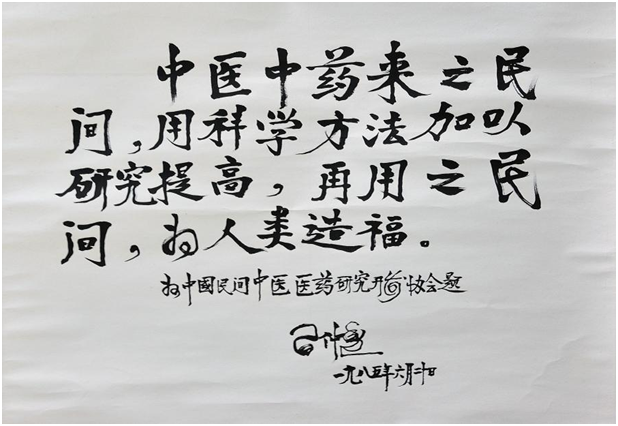 中医中药来之民
间，用科学方法加以
研究提高，再用之民
间，为人类造福。
为中國民间中医医药研究开发协会题
吕正操
一九八五年六月二十日